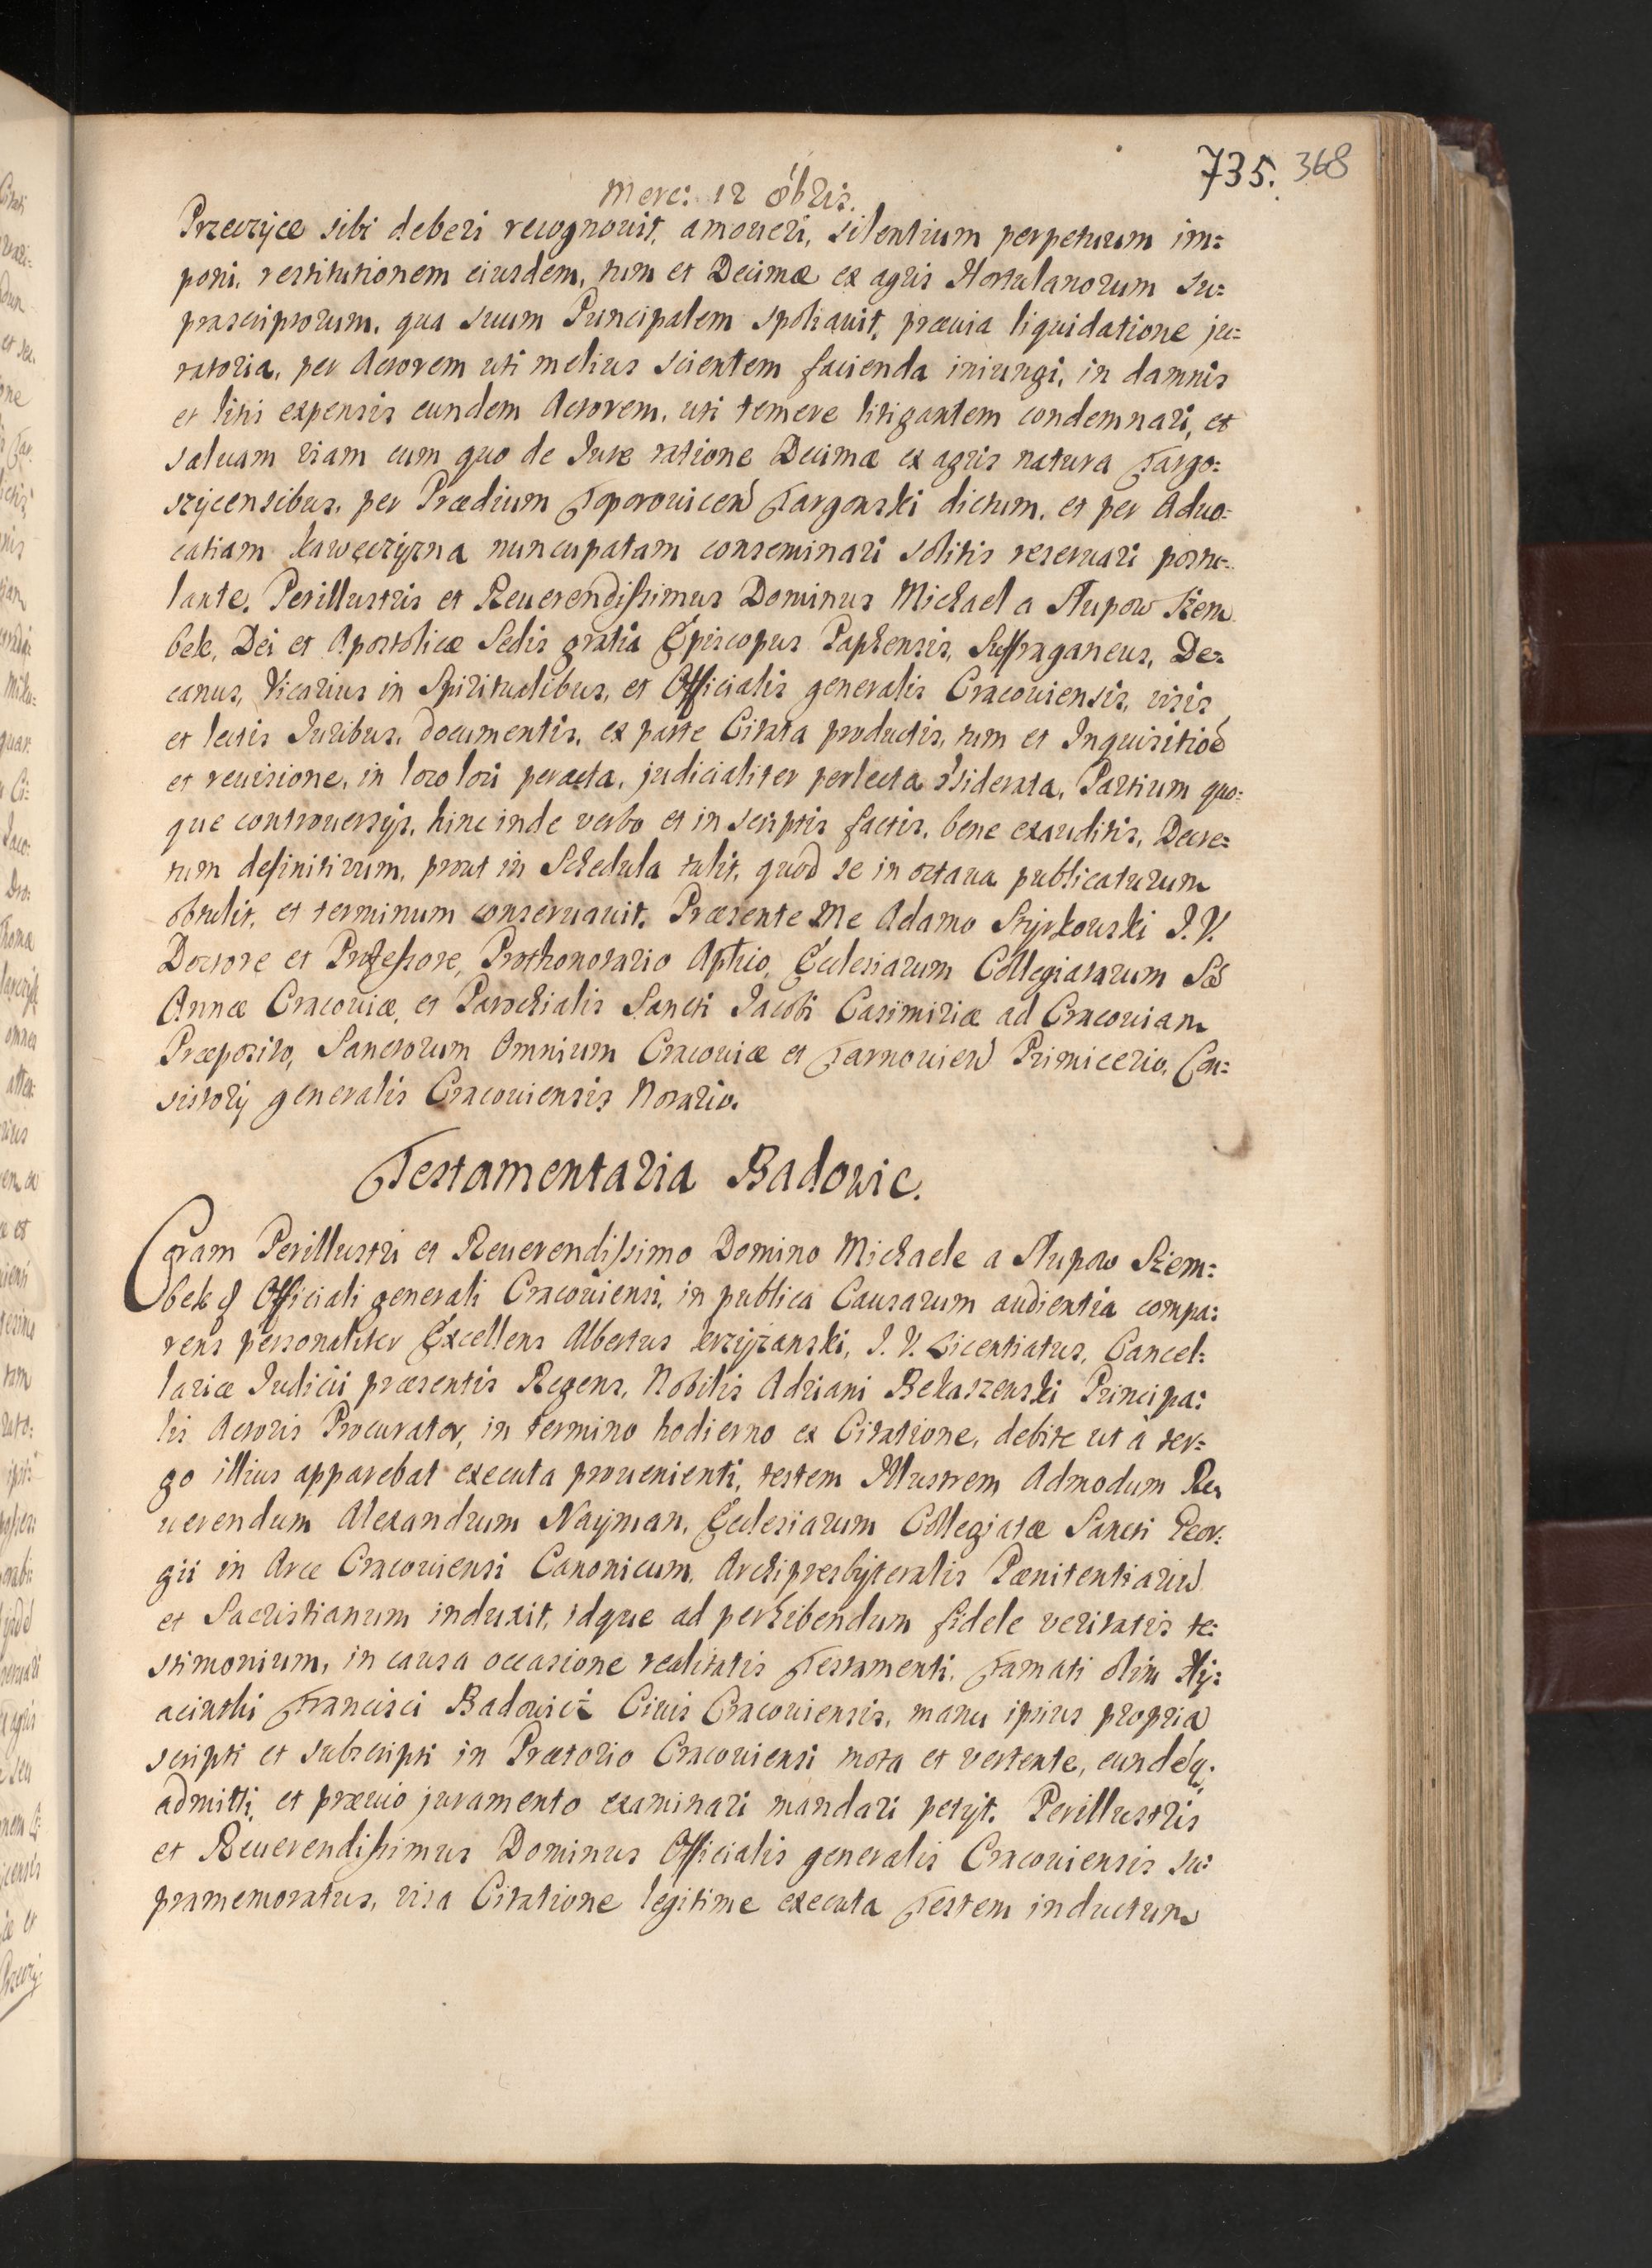 735. 368
Merc: 12 8bris.
Przeczyce sibi deberi recognouit, amoueri, silentium perpetuum im=
poni, restitutionem eiusdem, tum et Decimæ ex agris Hortulanorum su=
prascriptorum, qua suum Principalem spoliauit, præuia liquidatione ju=
ratoria, per Actorem uti melius scientem facienda iniungi, in damnis
et litis expensis eundem Actorem, uti temere litigantem condemnari, et
saluam viam cum quo de Jure ratione Decimæ ex agris natura Targo=
szycensibus, per Prædium Toporouicen Targonski dictum, et per Aduo=
catiam kawęczyzna nuncupatam conseminari solitis reseruari postu=
lante. Perillustris et Reuerendissimus Dominus Michael a Słupow Szem
bek, Dei et Apostolicæ Sedis gratia Episcopus Paphensis, Suffraganeus, De=
canus, Vicarius in Spiritualibus, et Officialis generalis Cracouiensis, visis
et lectis Juribus, documentis, ex parte Citata productis, tum et Inquisitioe
et reuisione, in loco loci peracta, judicialiter perlecta 9siderata, Partium quo=
que controuersijs, hinc inde verbo et in scriptis factis, bene exauditis, Decre=
tum definitiuum, prout in Schedula tulit, quod se in octaua publicaturum
obtulit, et terminum conseruauit. Præsente Me Adamo Stryskowski J. V.
Doctore et Professore, Prothonotario Aplico, Ecclesiarum Collegiatarum Sæ
Annæ Cracouiæ, et Parochialis Sancti Jacobi Casimiriæ ad Cracouiam
Præposito, Sanctorum Omnium Cracouiæ et Tarnouien Primicerio, Con=
sistorij generalis Cracouiensis Notario.
Testamentaria Badowic.
Coram Perillustri et Reuerendissimo Domino Michaele a Słupow Szem=
bek Officiali generali Cracouiensi, in publica Causarum audientia compa=
rens personaliter Excellens Albertus krzyżanski, J. V. Licentiatus, Cancel=
lariæ Judicii præsentis Regens, Nobilis Adriani Bekaszewski Principa=
lis Actoris Procurator, in termino hodierno ex Citatione, debite ut à ter=
go illius apparebat executa prouenienti, testem Illustrem Admodum Re=
uerendum Alexandrum Nayman, Ecclesiarum Collegiatæ Sancti Geor=
gii in Arce Cracouiensi Canonicum, Archipresbyteralis Pœnitentiariu
et Sacristianum induxit, idque ad perhibendum fidele veritatis te=
stimonium, in causa occasione realitatis Testamenti, Famati olim Hy=
acinthi Francisci Badowicz Ciuis Cracouiensis, manu ipsius propria
scripti et subscripti in Prætorio Cracouiensi mota et vertente, eundeq;
admitti, et præuio juramento examinari mandari petijt. Perillustris
et Reuerendissimus Dominus Officialis generalis Cracouiensis su=
pramemoratus, visa Citatione legitime executa Testem inductum